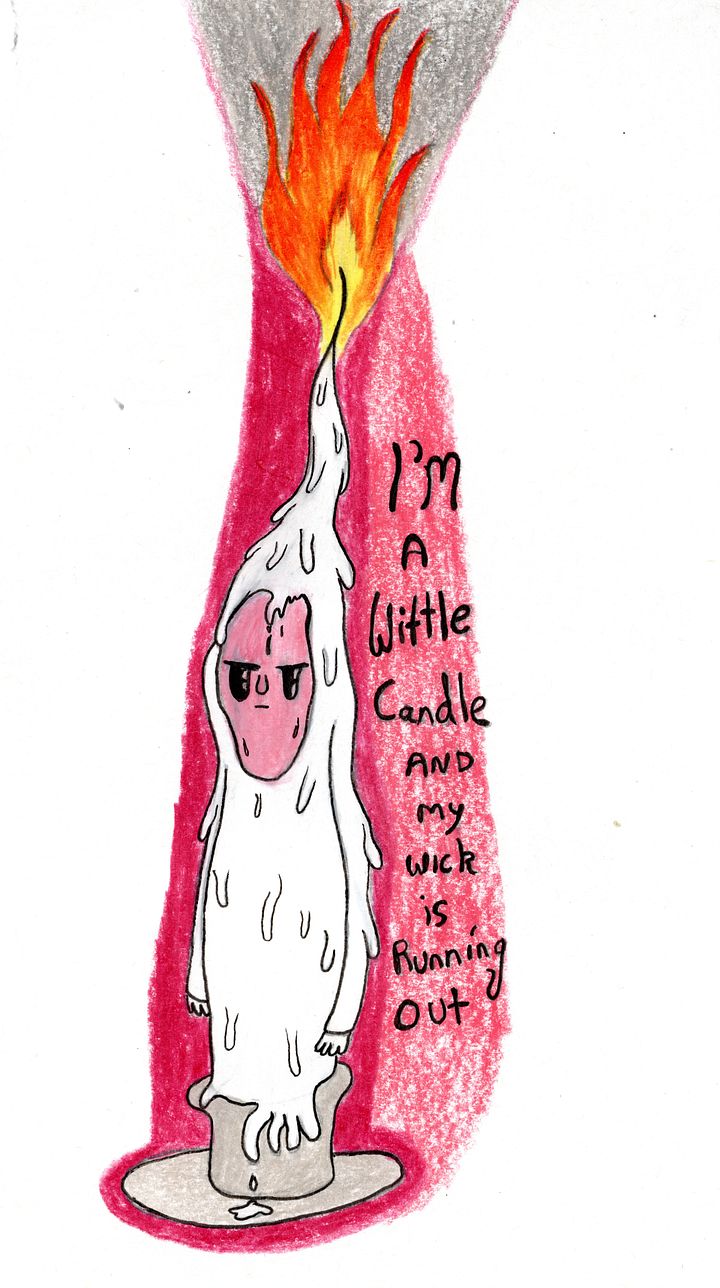 I'm
A
Wittle
Candle
AND
my
wick
is
Running
out